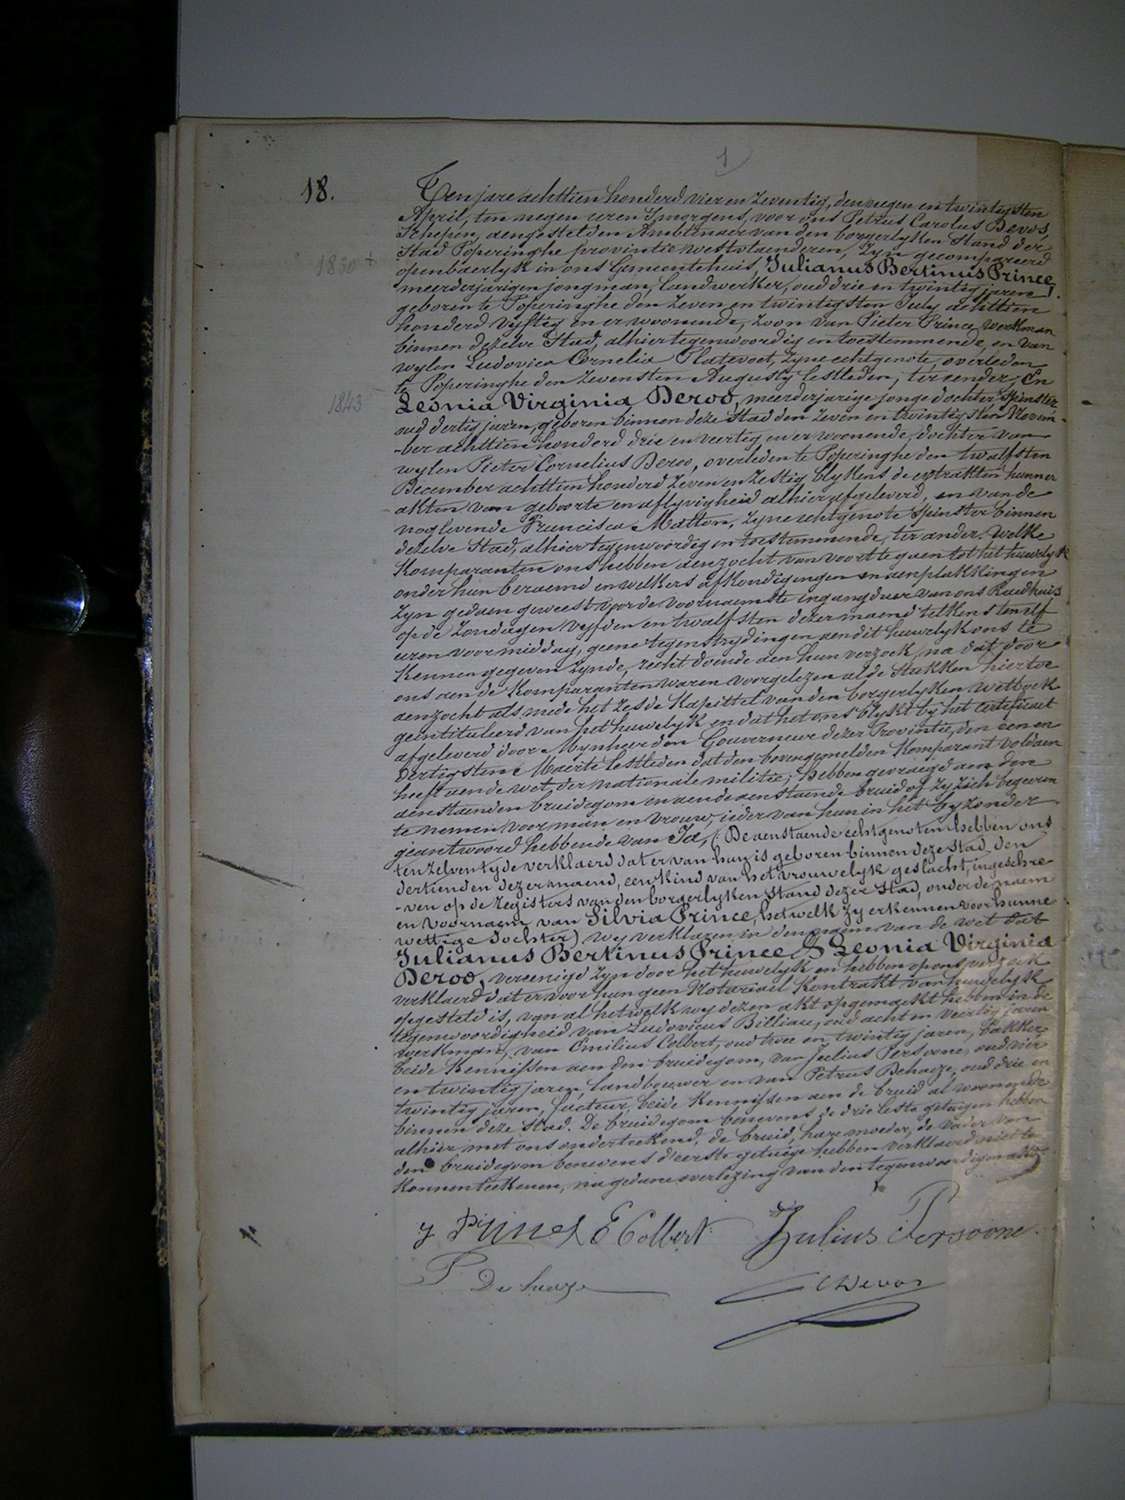 1
18.
Ten jare achttien honderd vier en zeventig, den negen en twintigsten
April, ten negen uren 's morgens, voor ons Petrus Carolus Devos,
Schepen, aengestelden Ambtenaer van den borgerlyken Stand der
Stad Poperinghe provintie westvlaenderen, zyn gecompareerd
1850 +
openbaerlyk in ons Gemeentehuis, Julianus Bertinus Prince,
meerderjarigen jongman, landwerker, oud drie en twintig jaren,
geboren te Poperinghe den zeven en twintigsten July achttien
honderd vyftig en er woonende, zoon van Pieter Prince werkman
binnen dezelve Stad, alhier tegenwoordig en toestemmende, en van
wylen Ludovica Cornelia Platevoet, zyne echtgenote, overleden
te Poperinghe den zevensten Augusty lestleden, ter eender; En
1843
Leonia Virginia Deroo, meerderjarige jonge dochter, spinster,
oud dertig jaren, geboren binnen deze Stad den zeven en twintigsten Novem-
-ber achttien honderd drie en veertig en er woonende, dochter van
wylen Pieter Cornelius Deroo, overleden te Poperinghe den twalfsten
December achttien honderd zeven en zestig blykens de extrakten hunner
akten van geboorte en aflyvigheid alhier afgeleverd, en van de
noglevende Francisca Matton, zyne echtgenote spinster binnen
dezelve Stad, alhier tegenwoordig en toestemmende, ter ander, welke
Komparanten ons hebben aenzocht van voort te gaen tot het huwelyk
onder hun beraemd en welkers afkondigingen en aenplakkingen
zyn gedaen geweest voor de voornaemste ingangdeur van ons Raedhuis
op de zondagen vyfden en twalfsten dezer maend telkens ten elf
uren voormiddag, geene tegenstrydingen aen dit huwelyk ons te
kennen gegeven zynde, recht doende aen hun verzoek, na dat door
ons aen de Komparanten waren voorgelezen al de stukken hiertoe
aenzocht als mede het zesde Kapittel van den borgerlyken Wetboek
geintituleerd van het huwelyk en dat het ons blykt by het certificaet
afgeleverd door Mynheer den Gouverneur dezer Provintie, den een en
dertigsten Maerte lestleden dat den bovengemelden Komparant voldaen
heeft aen de wet der nationale militie; Hebben gevraegd aen den
aenstaenden bruidegom en aen de aenstaende bruid of zy zich begeeren
te nemen voor man en vrouw, ieder van hun in het byzonder
geantwoord hebbende van Ja, (De aenstaende echtgenoten hebben ons
ten zelven tyde verklaerd dat er van hun is geboren binnen deze stad, den
dertienden dezer maend, een kind van het vrouwelyk geslacht, ingeschre
-ven op de registers van den borgerlyken Stand dezer Stad, onder de naem
en voornaem van Silvia Prince, hetwelk zy erkennen voor hunne
wettige dochter) wy verklaren in den naem van de wet dat
Julianus Bertinus Prince & Leonia Virginia
Deroo, vereenigd zyn door het huwelyk en hebben op ons verzoek
verklaerd dat er voor hun geen Notariael Kontrakt van huwelyk
opgesteld is, van al hetwelk wy dezen akt opgemaekt hebben in de
tegenwoordigheid van Ludovicus Billiau, oud acht en veertig jaren
werkman, van Emilius Colbert, oud twee en twintig jaren, bakker
beide Kennissen aen den bruidegom, van Julius Persoone, oud vier
en twintig jaren, landbouwer en van Petrus Dehaeze, oud drie en
twintig jaren, facteur, beide Kennissen aen de bruid al woonende
binnen deze Stad. De bruidegom benevens de drie leste getuigen hebben
alhier met ons onderteekend, de bruid, hare moeder, de vader van
den bruidegom benevens d'eerste getuige hebben verklaerd niet te
konnen teekenen, na gedane overlezing van den tegenwoordigen akte
J Prince E Colbert Julius Persoone
P Dehaeze CDevos